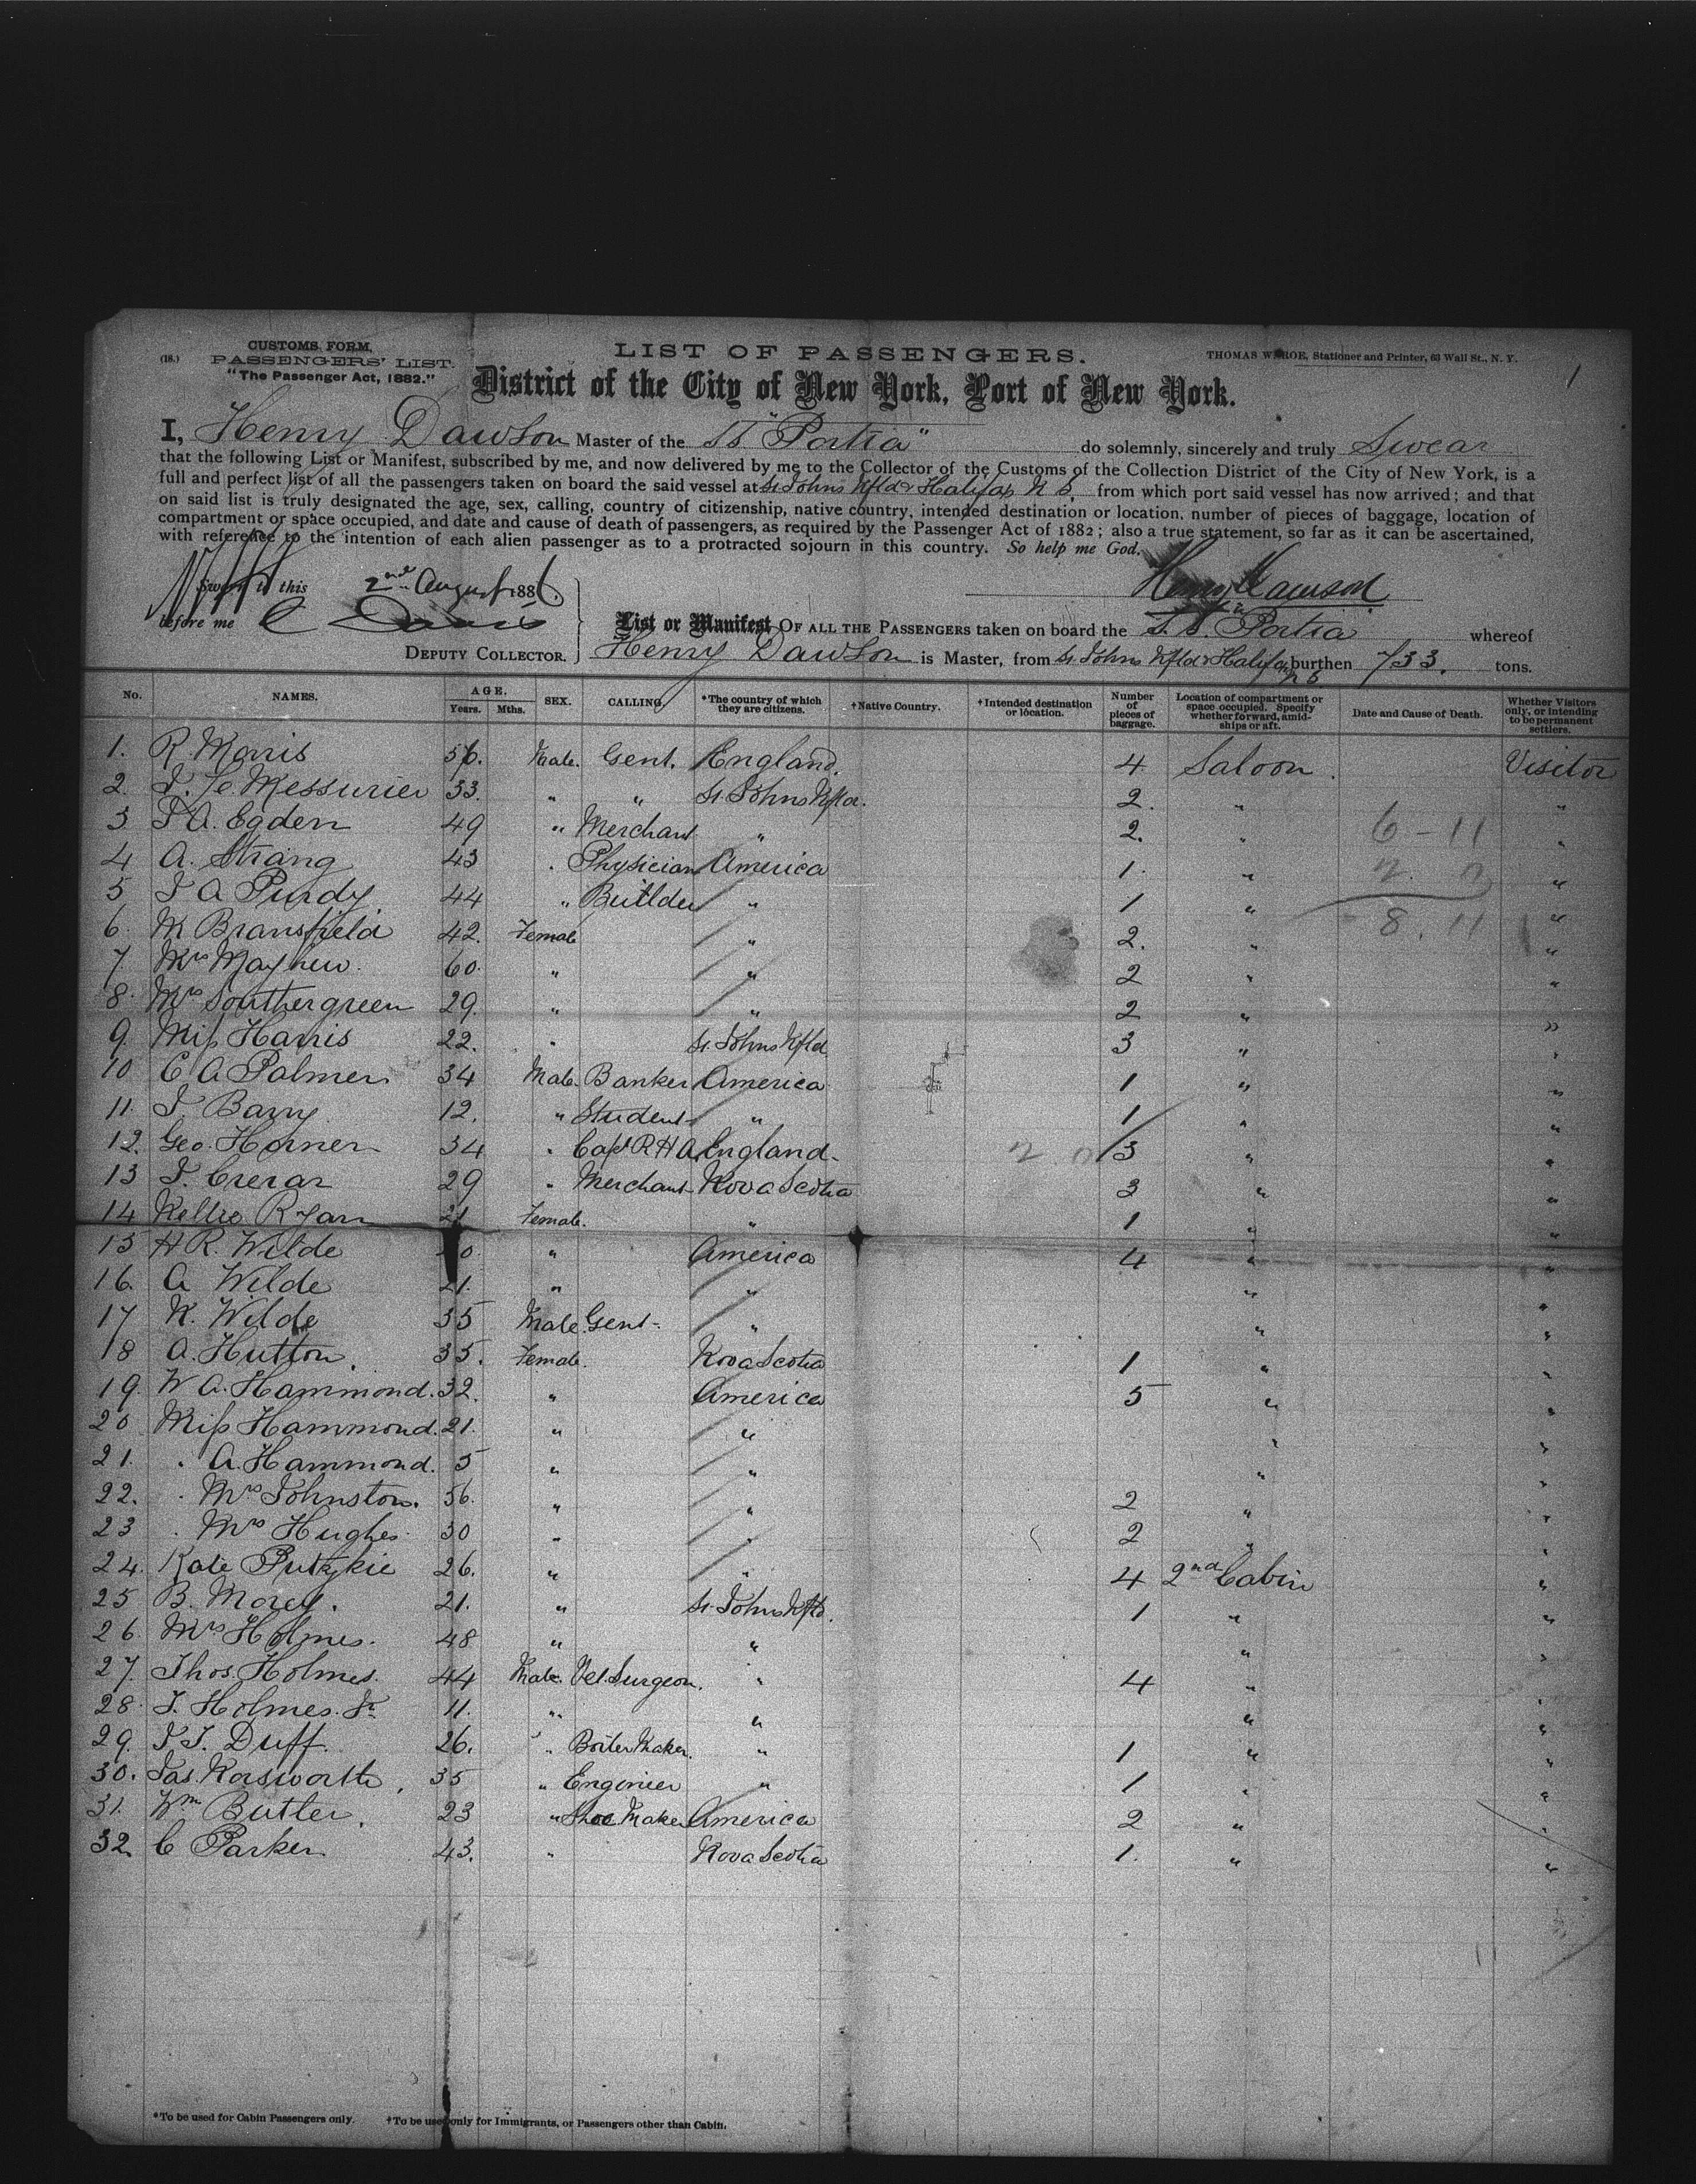 (18.) CUSTOMS FORM, PASSENGERS' LIST. "The Passenger Act, 1882."
LIST OF PASSENGERS.
THOMAS W. ROE, Stationer and Printer, 63 Wall St., N. Y.
1
District of the City of New York, Port of New York.
I, Henry Dawson Master of the SS "Portia" do solemnly, sincerely and truly Swear
that the following List or Manifest, subscribed by me, and now delivered by me to the Collector of the Customs of the Collection District of the City of New York, is a
full and perfect list of all the passengers taken on board the said vessel at St Johns Nfld & Halifax N S. from which port said vessel has now arrived; and that
on said list is truly designated the age, sex, calling, country of citizenship, native country, intended destination or location, number of pieces of baggage, location of
compartment or space occupied, and date and cause of death of passengers, as required by the Passenger Act of 1882; also a true statement, so far as it can be ascertained,
with reference to the intention of each alien passenger as to a protracted sojourn in this country. So help me God.
Sworn to this 2nd August 1886.
Henry Dawson
before me
DEPUTY COLLECTOR.
List or Manifest OF ALL THE PASSENGERS taken on board the S.S. "Portia" whereof
Henry Dawson is Master, from St Johns Nfld & Halifax NS burthen 733. tons.
No. NAMES. AGE. Years. Mths. SEX. CALLING. *The country of which they are citizens. †Native Country. †Intended destination or location. Number of pieces of baggage. Location of compartment or space occupied. Specify whether forward, amidships or aft. Date and Cause of Death. Whether Visitors only, or intending to be permanent settlers.
1. R. Morris 56. Male. Gent. England. 4 Saloon. Visitor
2. J. Le Messurier 33. " " St. Johns Nfld. 2. " "
3. A. Egden 49 " Merchant " 2. " 6-11 "
4 A. Strang 43 " Physician America 1. " "
5 J A Purdy 44 " Builder " 1 " "
6. M Bransfield 42. Female " 2. " 8.11 "
7 Mrs Mayhew. 60. " " 2 " "
8. Mrs Southergreen 29. " " 2 " "
9. Miss Harris 22. " St. Johns Nfld 3 " "
10 C A Palmer 34 Male. Banker America 1 " "
11. J. Barry 12. " Student " 1 " "
12. Geo. Horner 34 " Capt R H A England. 3 " "
13 J. Crerar 29 " Merchant Nova Scotia 3 " "
14 Nellie Ryan 21 Female. " 1 " "
15 H R. Wilde " America 4 " "
16. A Wilde 21. " " " "
17 N. Wilde 35 Male. Gent. " " "
18 A. Hutton. 35. Female. Nova Scotia 1 " "
19. W A. Hammond. 32. " America 5 " "
20 Miss Hammond. 21. " " " "
21. " A. Hammond. 5 " " " "
22. Mrs Johnston. 56. " " 2 " "
23 Mrs Hughes. 30 " " 2 " "
24. Kate 26. " " 4 2nd Cabin "
25 B. Morey. 21. " St. Johns Nfld. 1 " "
26. Mrs Holmes. 48 " " " "
27. Thos. Holmes. 44 Male. Vet. Surgeon. " 4 " "
28. T. Holmes. Jr. 11. " " " "
29. J. Duff. 26. " Boiler Maker. " 1 " "
30. Jas. Norsworth, 35 " Engineer " 1 " "
31. Wm Butler. 23 " Shoe Maker America 2 " "
32. C Parker 43. " Nova Scotia 1. " "
*To be used for Cabin Passengers only. †To be used only for Immigrants, or Passengers other than Cabin.